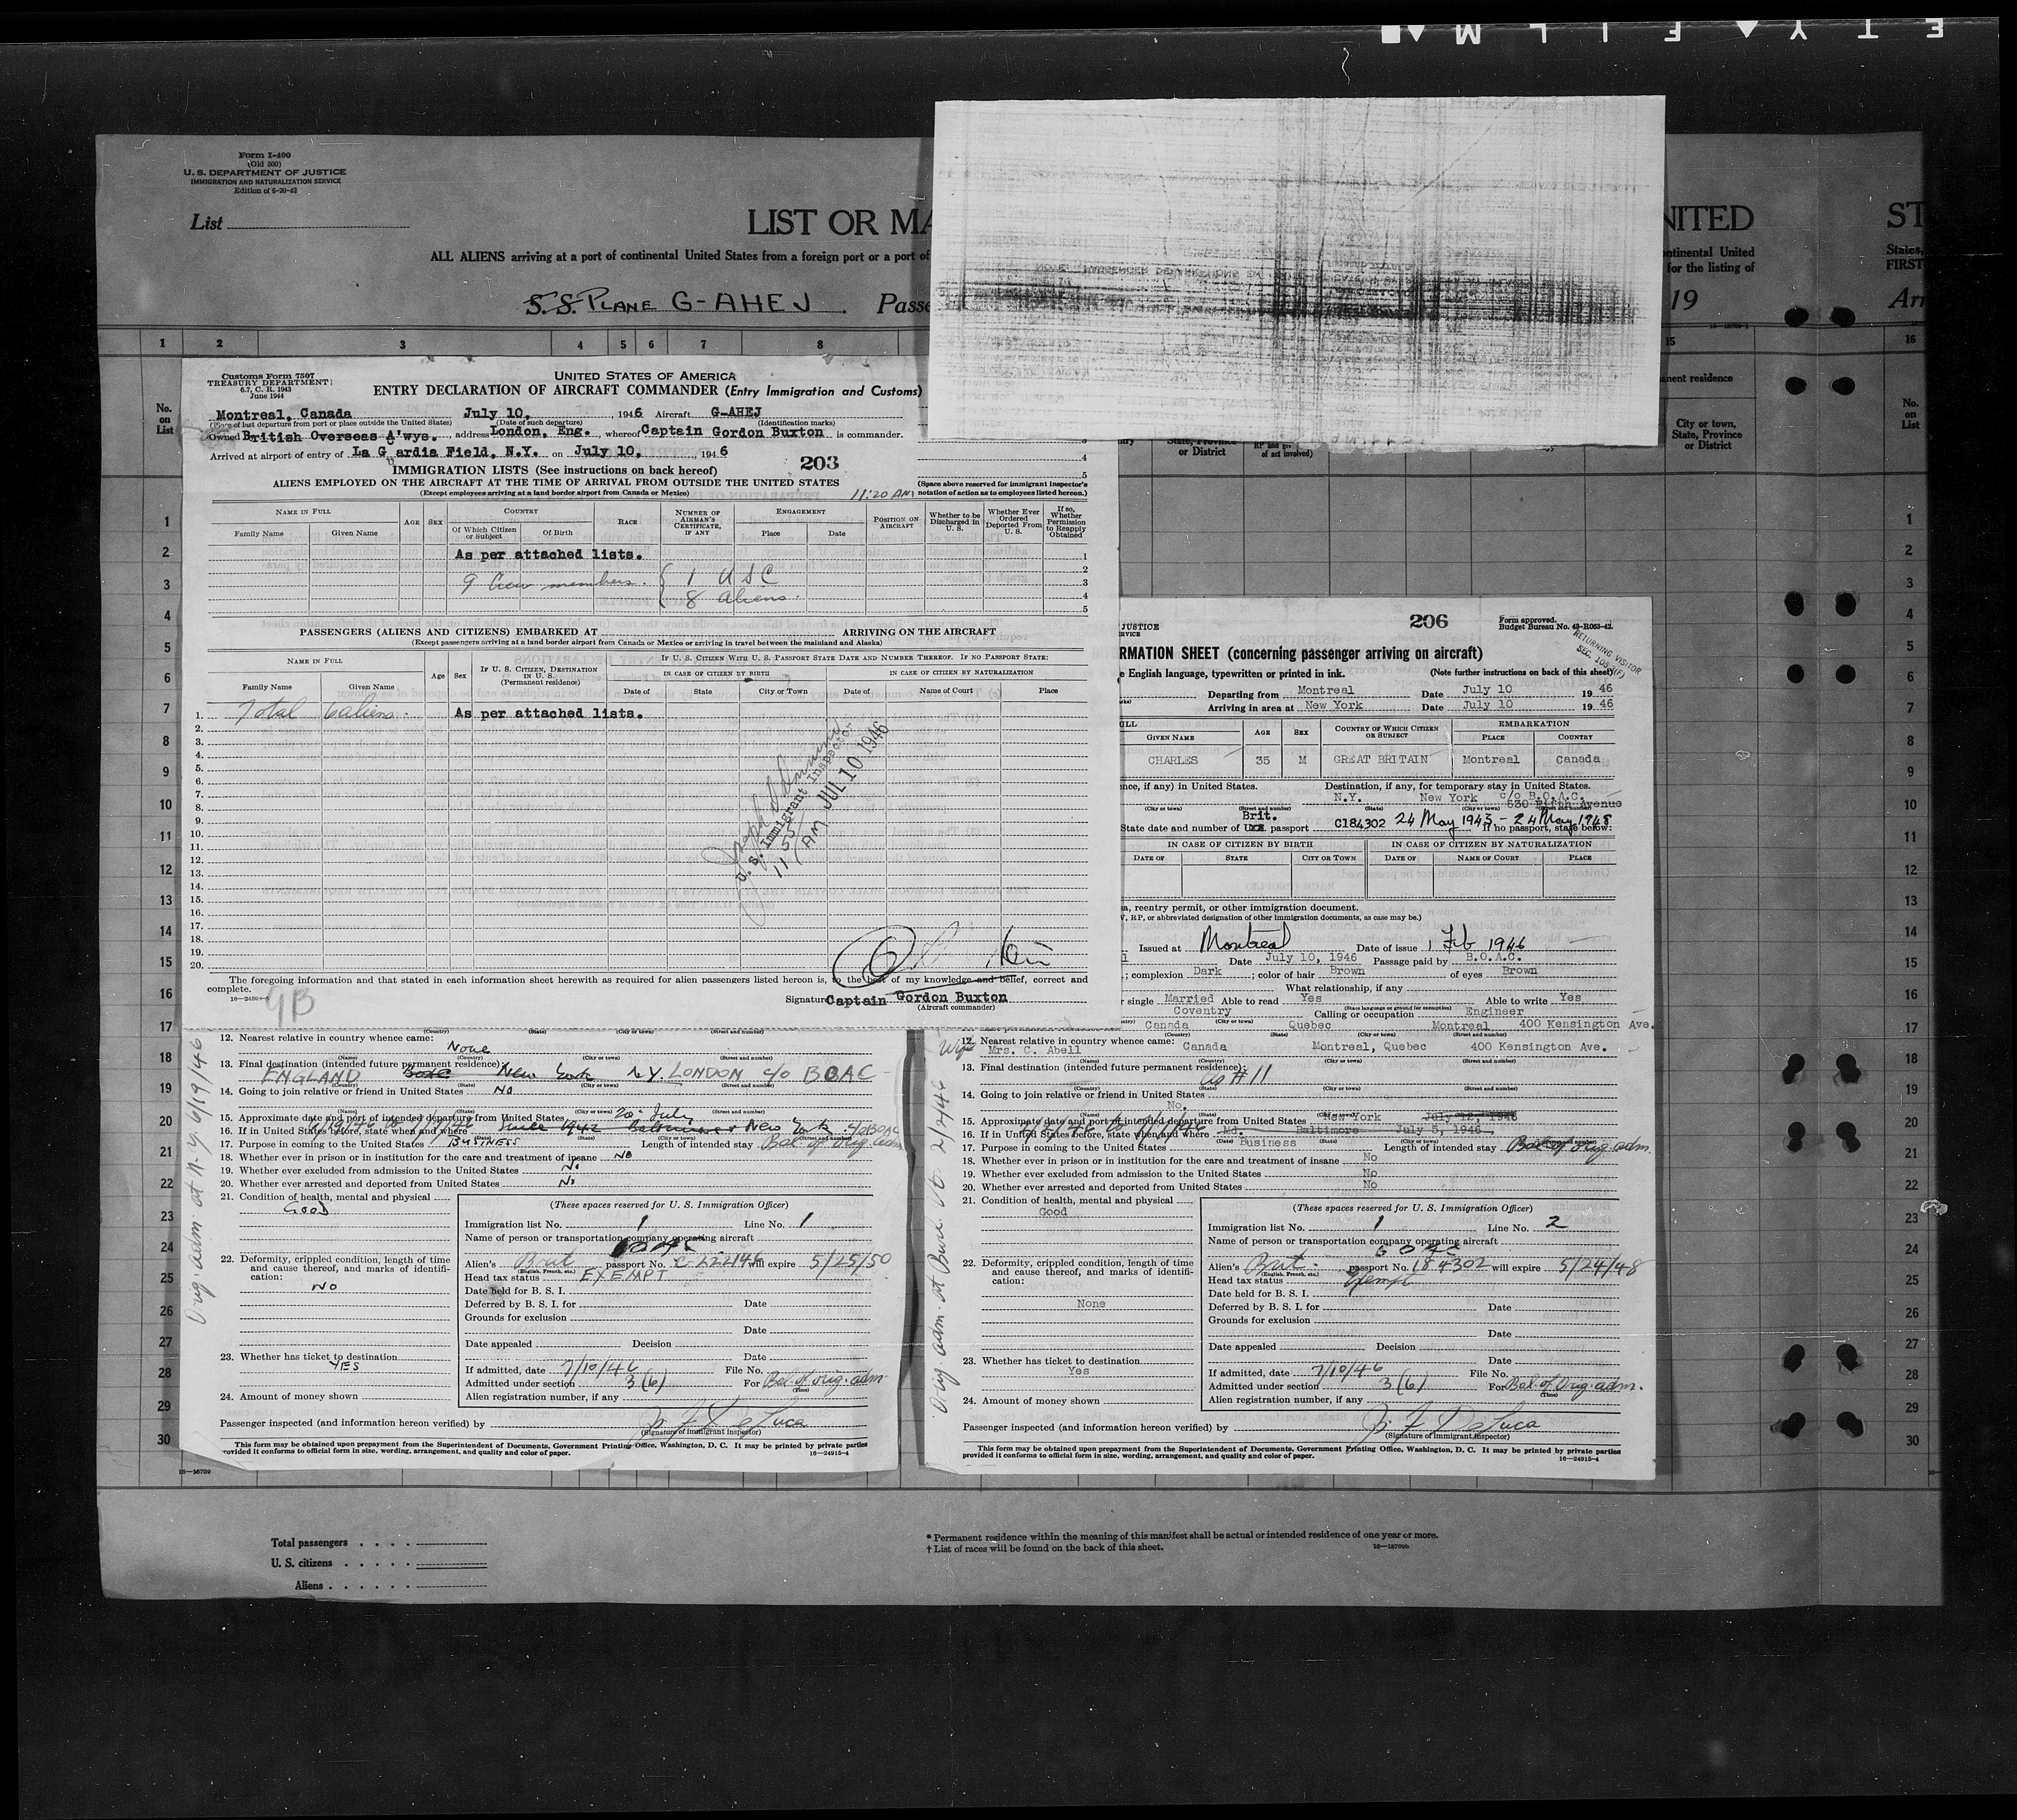 SAFETY FILM
Form I-400
(Old 500)
U. S. DEPARTMENT OF JUSTICE
IMMIGRATION AND NATURALIZATION SERVICE
Edition of 6-20-42
List
LIST OR MA
NITED
ST
ALL ALIENS arriving at a port of continental United States from a foreign port or a port of
ntinental United
for the listing of
States,
FIRST
S.S. PLANE G-AHEJ Passe
19
Arr
1 2 3 4 5 6 7 8
15 16
No. on List
anent residence
City or town, State, Province or District
State, Province or District
No. on List
Customs Form 7507
TREASURY DEPARTMENT
6.7, C. R. 1943
June 1944
UNITED STATES OF AMERICA
ENTRY DECLARATION OF AIRCRAFT COMMANDER (Entry Immigration and Customs)
Montreal, Canada July 10, 1946 Aircraft G-AHEJ
(Place of last departure from port or place outside the United States) (Date of such departure) (Identification marks)
Owned British Overseas A'wys., address London, Eng., whereof Captain Gordon Buxton is commander.
Arrived at airport of entry of La Guardia Field, N.Y. on July 10, 1946
203
IMMIGRATION LISTS (See instructions on back hereof)
ALIENS EMPLOYED ON THE AIRCRAFT AT THE TIME OF ARRIVAL FROM OUTSIDE THE UNITED STATES
(Except employees arriving at a land border airport from Canada or Mexico)
11:20 AM
(Space above reserved for immigrant inspector's notation of action as to employees listed hereon.)
NAME IN FULL AGE SEX COUNTRY RACE NUMBER OF AIRMAN'S CERTIFICATE, IF ANY ENGAGEMENT POSITION ON AIRCRAFT Whether to be Discharged in U. S. Whether Ever Ordered Deported From U. S. If so, Whether Permission to Reapply Obtained
Family Name Given Name Of Which Citizen or Subject Of Birth Place Date
As per attached lists.
9 Crew members. { 1 USC
8 aliens.
PASSENGERS (ALIENS AND CITIZENS) EMBARKED AT ARRIVING ON THE AIRCRAFT
(Except passengers arriving at a land border airport from Canada or Mexico or arriving in travel between the mainland and Alaska)
NAME IN FULL Age Sex IF U. S. CITIZEN, DESTINATION IN U. S. (Permanent residence) IF U. S. CITIZEN WITH U. S. PASSPORT STATE DATE AND NUMBER THEREOF. IF NO PASSPORT STATE:
IN CASE OF CITIZEN BY BIRTH IN CASE OF CITIZEN BY NATURALIZATION
Family Name Given Name Date of State City or Town Date of Name of Court Place
1. Total 6 aliens. As per attached lists.
2.
3.
4.
5.
6.
7.
8.
9.
10.
11.
12.
13.
14.
15.
16.
17.
18.
19.
20.
U. S. Immigrant Inspector
11 55 AM JUL 10 1946
The foregoing information and that stated in each information sheet herewith as required for alien passengers listed hereon is, to the best of my knowledge and belief, correct and complete.
GB
Signature Captain Gordon Buxton
(Aircraft commander)
206
Form approved.
Budget Bureau No. 43-R063-42.
JUSTICE
RVICE
RETURNING VISITOR
RMATION SHEET (concerning passenger arriving on aircraft)
e English language, typewritten or printed in ink. (Note further instructions on back of this sheet)
Departing from Montreal Date July 10 1946
Arriving in area at New York Date July 10 1946
GIVEN NAME AGE SEX COUNTRY OF WHICH CITIZEN OR SUBJECT EMBARKATION
PLACE COUNTRY
CHARLES 35 M GREAT BRITAIN Montreal Canada
nce, if any) in United States. Destination, if any, for temporary stay in United States.
N.Y. New York c/o B.O.A.C. 530 Fifth Avenue
(City or town) (Street and number) (State) (City or town) (Street and number)
State date and number of Brit. passport C184302 24 May 1943 - 24 May 1948 If no passport, state below:
IN CASE OF CITIZEN BY BIRTH IN CASE OF CITIZEN BY NATURALIZATION
DATE OF STATE CITY OR TOWN DATE OF NAME OF COURT PLACE
a, reentry permit, or other immigration document.
, RP, or abbreviated designation of other immigration documents, as case may be.)
Issued at Montreal Date of issue 1 Feb 1946
Date July 10, 1946 Passage paid by B.O.A.C.
; complexion Dark ; color of hair Brown of eyes Brown
What relationship, if any
r single Married Able to read Yes Able to write Yes
Coventry Calling or occupation Engineer
Canada Quebec Montreal 400 Kensington Ave.
12. Nearest relative in country whence came:
Wife Mrs. C. Abell Canada Montreal, Quebec 400 Kensington Ave.
13. Final destination (intended future permanent residence):
as #11
14. Going to join relative or friend in United States
No.
15. Approximate date and port of intended departure from United States New York July 12, 1946
16. If in United States before, state when and where Md. Baltimore July 5, 1946
17. Purpose in coming to the United States Business Length of intended stay Bal. of orig. adm.
18. Whether ever in prison or in institution for the care and treatment of insane No
19. Whether ever excluded from admission to the United States No
20. Whether ever arrested and deported from United States No
21. Condition of health, mental and physical
Good
22. Deformity, crippled condition, length of time and cause thereof, and marks of identification:
None
23. Whether has ticket to destination
Yes
24. Amount of money shown
(These spaces reserved for U. S. Immigration Officer)
Immigration list No. 1 Line No. 2
Name of person or transportation company operating aircraft
BOAC
Alien's Brit. passport No. 184302 will expire 5/24/48
Head tax status Exempt
Date held for B. S. I.
Deferred by B. S. I. for Date
Grounds for exclusion
Date
Date appealed Decision
Date
If admitted, date 7/10/46 File No.
Admitted under section 3 (6) For Bal. of Orig. adm.
Alien registration number, if any
Passenger inspected (and information hereon verified) by
(Signature of immigrant inspector)
This form may be obtained upon prepayment from the Superintendent of Documents, Government Printing Office, Washington, D. C. It may be printed by private parties
provided it conforms to official form in size, wording, arrangement, and quality and color of paper.
16—24915-4
12. Nearest relative in country whence came:
None
13. Final destination (intended future permanent residence):
ENGLAND New York N.Y. LONDON c/o BOAC
14. Going to join relative or friend in United States NO
15. Approximate date and port of intended departure from United States 20 July
16. If in United States before, state when and where Since 1942 Baltimore New York
17. Purpose in coming to the United States BUSINESS Length of intended stay Bal. of Orig. adm
18. Whether ever in prison or in institution for the care and treatment of insane NO
19. Whether ever excluded from admission to the United States No
20. Whether ever arrested and deported from United States No
21. Condition of health, mental and physical
GOOD
22. Deformity, crippled condition, length of time and cause thereof, and marks of identification:
NO
23. Whether has ticket to destination
YES
24. Amount of money shown
(These spaces reserved for U. S. Immigration Officer)
Immigration list No. 1 Line No. 1
Name of person or transportation company operating aircraft
BOAC
Alien's Brit passport No. C-222146 will expire 5/25/50
Head tax status EXEMPT
Date held for B. S. I.
Deferred by B. S. I. for Date
Grounds for exclusion
Date
Date appealed Decision
Date
If admitted, date 7/10/46 File No.
Admitted under section 3 (6) For Bal. of orig. adm
Alien registration number, if any
Passenger inspected (and information hereon verified) by
(Signature of immigrant inspector)
This form may be obtained upon prepayment from the Superintendent of Documents, Government Printing Office, Washington, D. C. It may be printed by private parties
provided it conforms to official form in size, wording, arrangement, and quality and color of paper.
16—24915-4
Orig. adm. at N.Y. 6/19/46
Total passengers
U. S. citizens
Aliens
* Permanent residence within the meaning of this manifest shall be actual or intended residence of one year or more.
† List of races will be found on the back of this sheet.